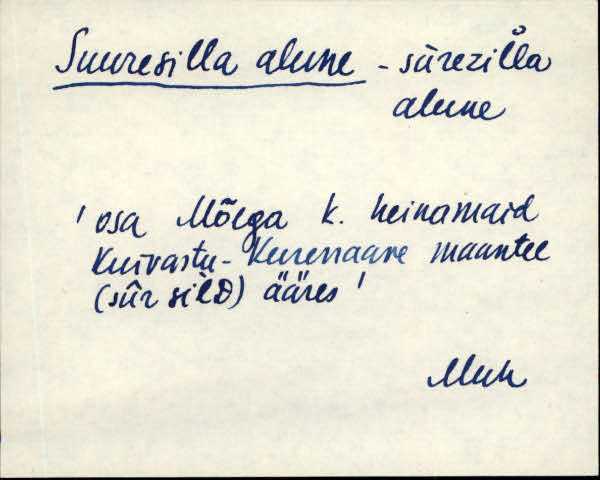 Suuresilla alune - sūrezil̊la
alune
' osa Mõega k. heinamaid
Kuivastu - Kuressaare maantee
(sūr silD) ääres '
Muh